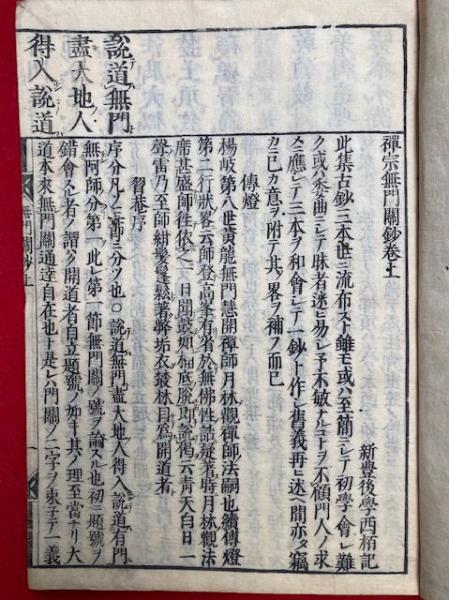 禪宗無門關鈔卷上
新豐後學西栢記
此集古鈔三本世ニ流布スト雖モ或ハ至簡ニシテ初學ハ會シ難
ク或ハ委曲ニシテ昧者迷ヒ易シ予不敏ナルコヲ不顧門人ノ求
メニ應シテ三本ヲ和會シテ一鈔ト作シ舊義再ヒ述ヘ間亦タ竊
カニ已カ意ヲ附テ其ノ畧ヲ補フ而已
傳燈
楊岐第八世黃龍無門慧開禪師月林觀禪師法嗣也續傳燈
第二行狀畧云師登高峯有省於無佛性話疑著時月林觀法
席甚盛師往依之一日聞鼓如桶底脫即說偈云青天白日一
聲雷乃至師紺髮髼鬆著弊垢衣叢林目爲開道者
習菴序
說道無門
盡大地人
得入說道
序分凡ソ二章三分ツ也○說道無門盡大地人得入說道有門
無阿師分第一此レ第一節無門關ノ號ヲ論スル也初ニ題號ヲ
錯會スル者ノ謂ク開道者自立題號ノ如キ其ノ理至當ナリ大
道本來無門關通達自在也 是レ 門關ノ二字ヲ束子テ一義
無門關鈔上